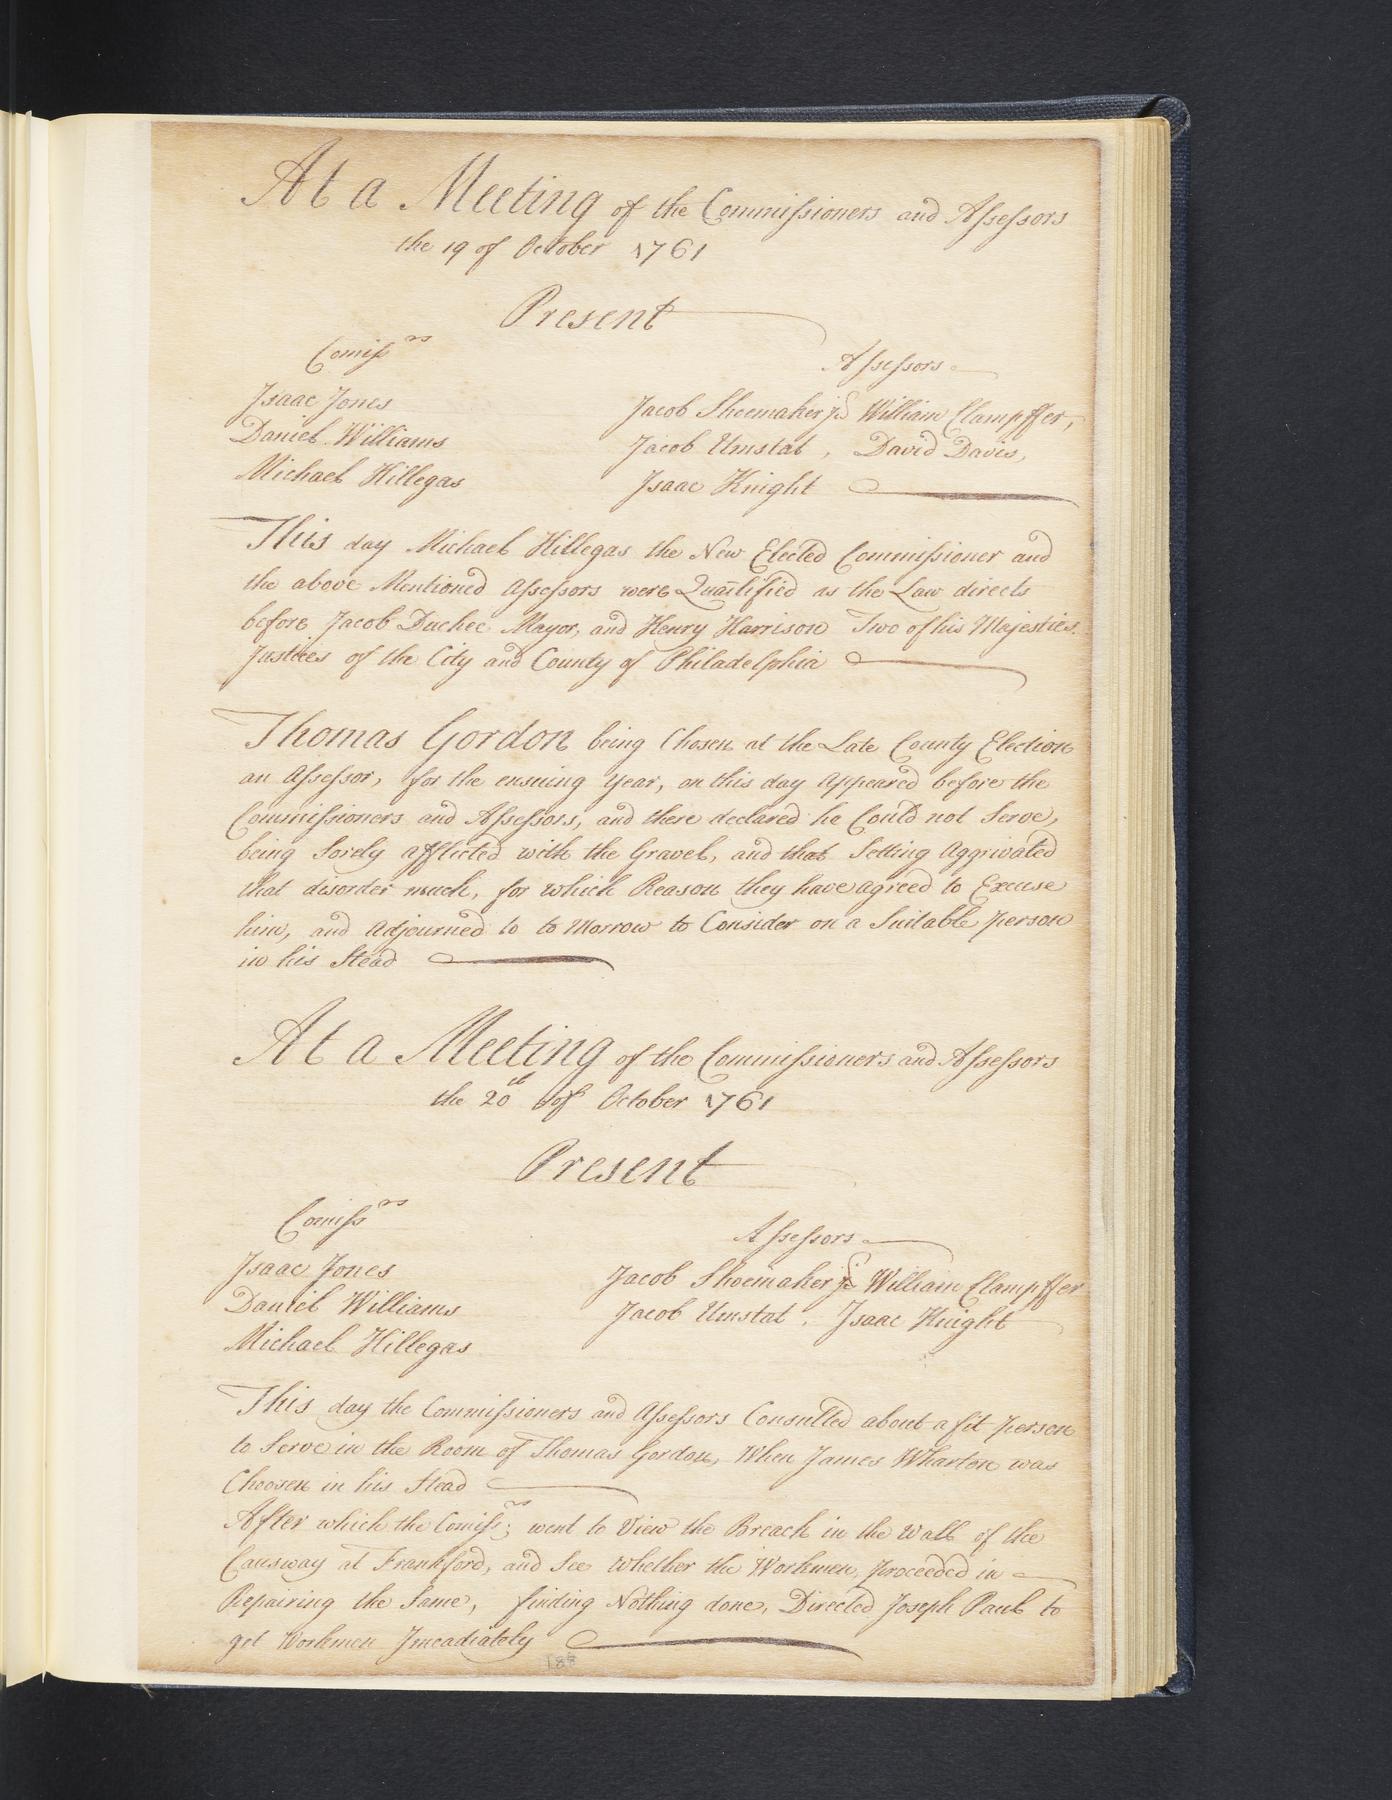 At a Meeting of the Commissioners and Assessors
the 19 of October 1761
Present
Comiss.rs
Assessors
Isaac Jones
Jacob Shoemaker jr William Clampffer,
Daniel Williams
Jacob Umstat, David Davis,
Michael Hillegas
Isaac Knight
This day Michael Hillegas the New Elected Commissioner and
the above Mentioned Assessors were Quallified as the Law directs
before Jacob Duchee Mayor, and Henry Harrison Two of his Majesties
Justices of the City and County of Philadelphia
Thomas Gordon being Chosen at the Late County Election
an Assessor, for the ensuing Year, on this day appeared before the
Commissioners and Assessors, and there declared he Could not Serve,
being Sorely afflicted with the Gravel, and that Setting Aggrivated
that disorder much, for which Reason they have agreed to Excuse
him, and adjourned to to Morrow to Consider on a Suitable person
in his Stead
At a Meeting of the Commissioners and Assessors
the 20th of October 1761
Present
Comissrs
Assessors
Isaac Jones
Jacob Shoemaker jr William Clampffer
Daniel Williams
Jacob Umstat, Isaac Knight
Michael Hillegas
This day the Commissioners and Assessors Consulted about a fit person
to Serve in the Room of Thomas Gordon, When James Wharton was
Choosen in his Stead
After which the Comissrs; went to View the Breach in the Wall of the
Causway at Frankford, and See whether the Workmen, proceeded in
Repairing the Same, finding Nothing done, Directed Joseph Paul to
get Workmen Jmeadiately
188